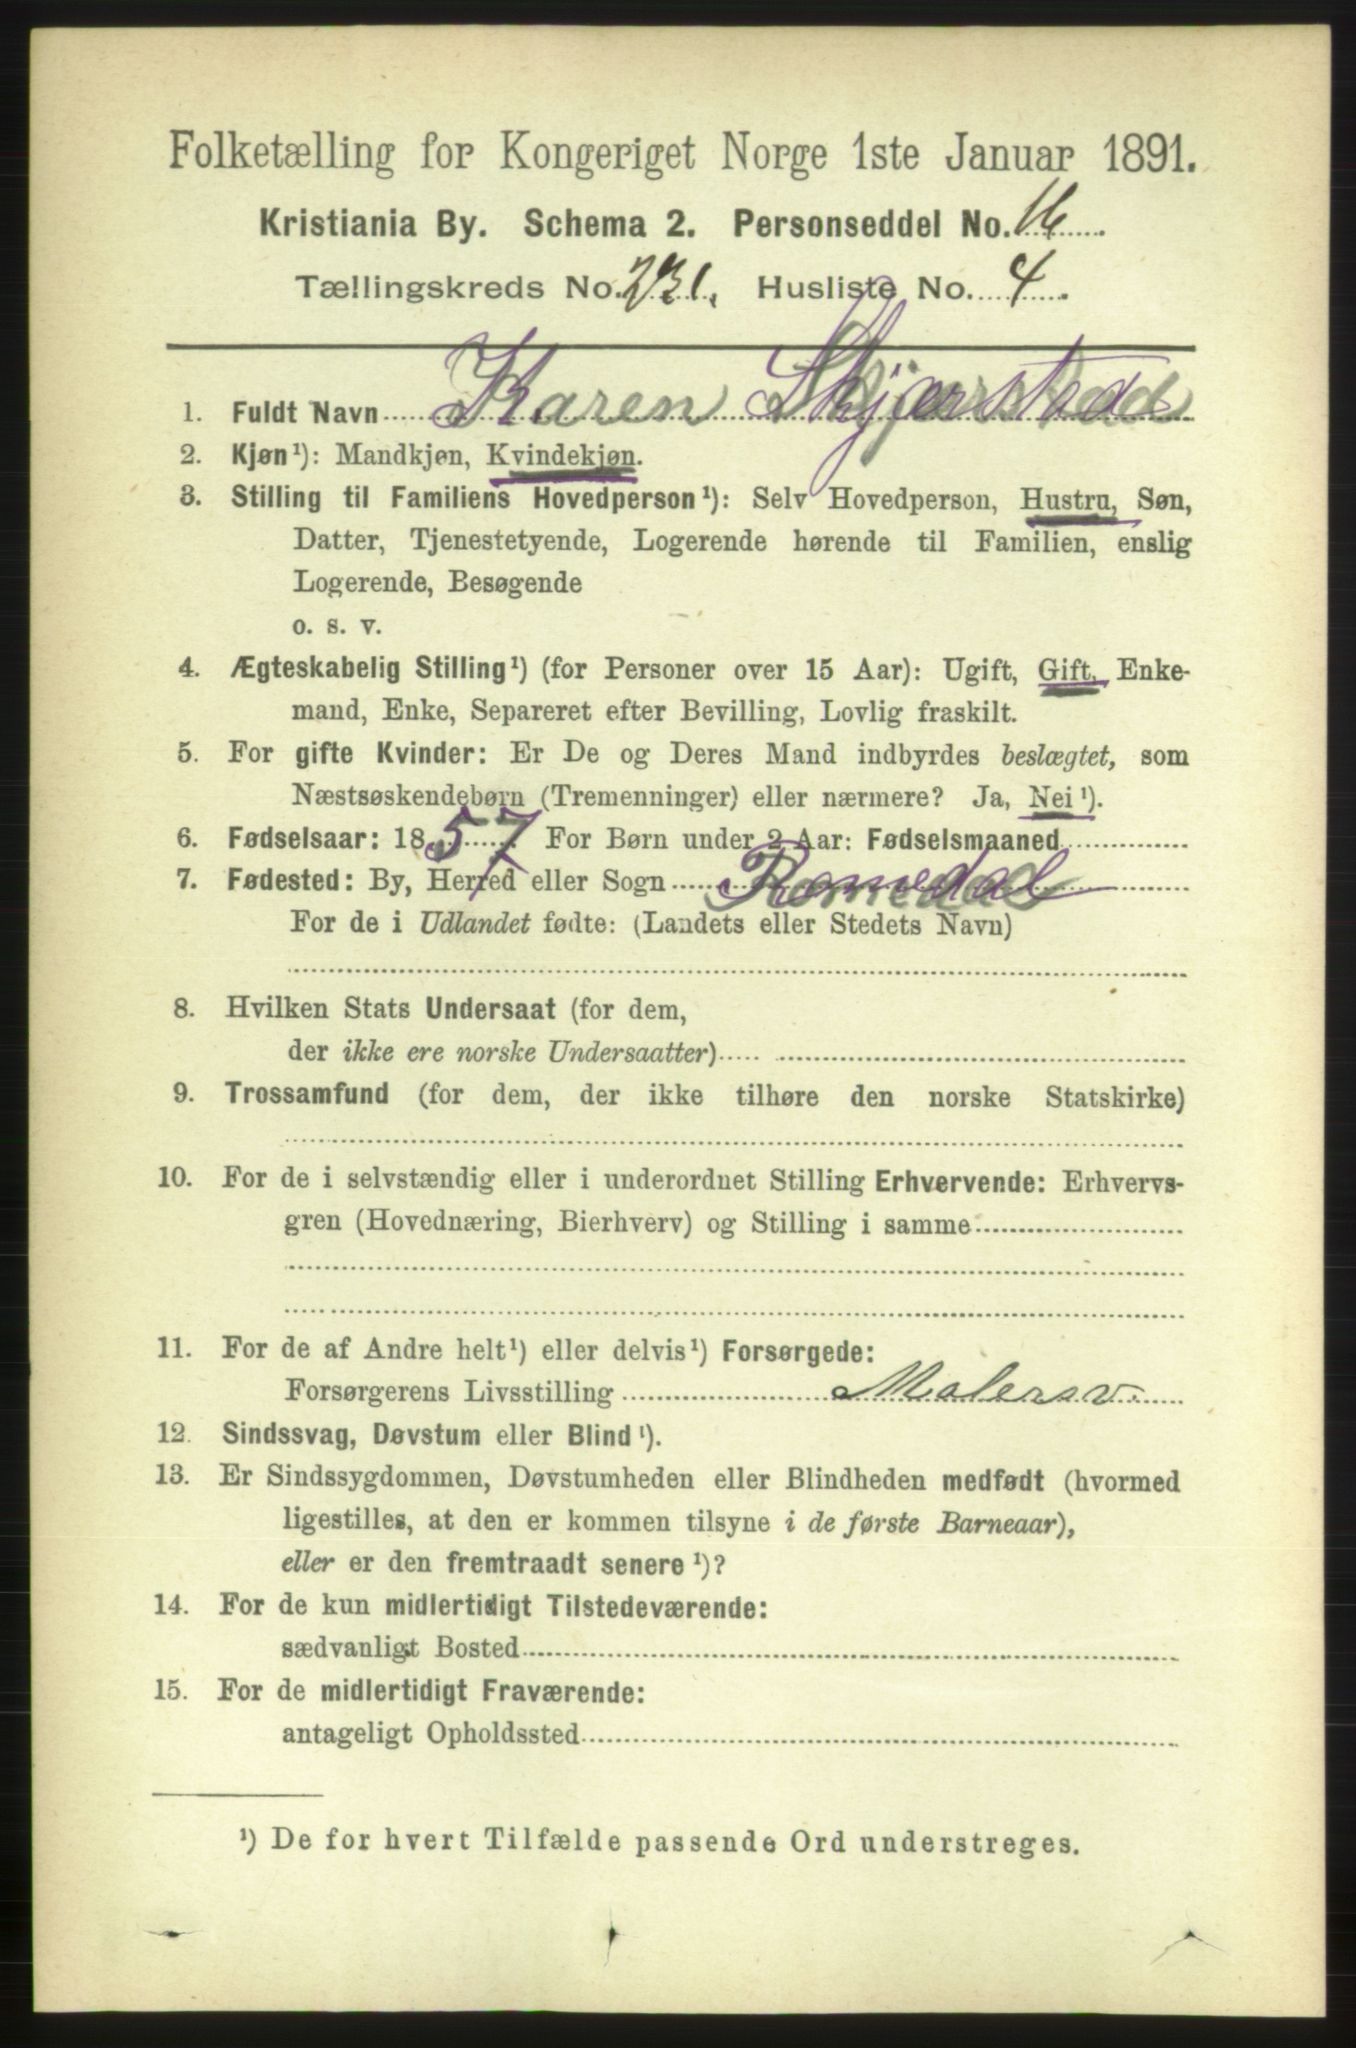 Folketælling for Kongeriget Norge 1ste Januar 1891.
Kristiania By. Schema 2. Personseddel No. 16
Tællingskreds No. 231. Husliste No. 4
1. Fuldt Navn Karen Skjærstad
2. Kjøn¹): Mandkjøn, Kvindekjøn.
3. Stilling til Familiens Hovedperson¹): Selv Hovedperson, Hustru, Søn,
Datter, Tjenestetyende, Logerende hørende til Familien, enslig
Logerende, Besøgende
o. s. v.
4. Ægteskabelig Stilling¹) (for Personer over 15 Aar): Ugift, Gift, Enke-
mand, Enke, Separeret efter Bevilling, Lovlig fraskilt.
5. For gifte Kvinder: Er De og Deres Mand indbyrdes beslægtet, som
Næstsøskendebørn (Tremenninger) eller nærmere? Ja, Nei¹).
6. Fødselsaar: 1857 For Børn under 2 Aar: Fødselsmaaned
7. Fødested: By, Herred eller Sogn Romedal
For de i Udlandet fødte: (Landets eller Stedets Navn)
8. Hvilken Stats Undersaat (for dem,
der ikke ere norske Undersaatter)
9. Trossamfund (for dem, der ikke tilhøre den norske Statskirke)
10. For de i selvstændig eller i underordnet Stilling Erhvervende: Erhvervs-
gren (Hovednæring, Bierhverv) og Stilling i samme
11. For de af Andre helt¹) eller delvis¹) Forsørgede:
Forsørgerens Livsstilling Malersv.
12. Sindssvag, Døvstum eller Blind¹).
13. Er Sindssygdommen, Døvstumheden eller Blindheden medfødt (hvormed
ligestilles, at den er kommen tilsyne i de første Barneaar),
eller er den fremtraadt senere¹)?
14. For de kun midlertidigt Tilstedeværende:
sædvanligt Bosted
15. For de midlertidigt Fraværende:
antageligt Opholdssted
¹) De for hvert Tilfælde passende Ord understreges.